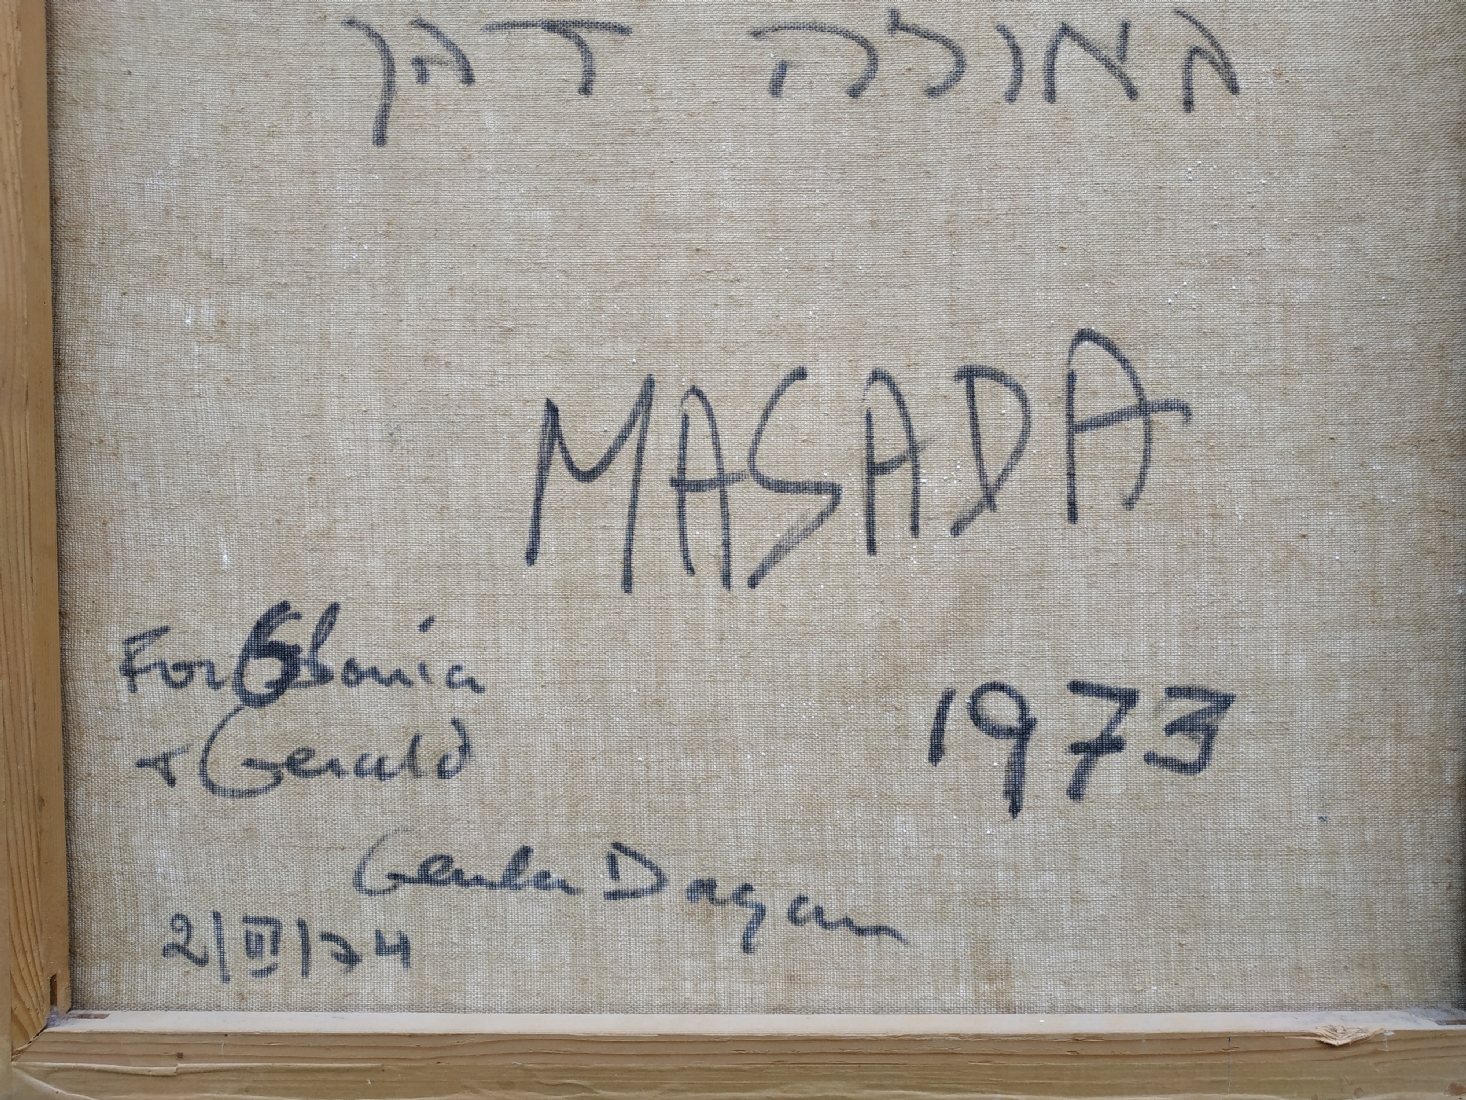 גאולה דגן
MASADA
For Sonia
+ Gerald
1973
Geula Dagan
2/III/74